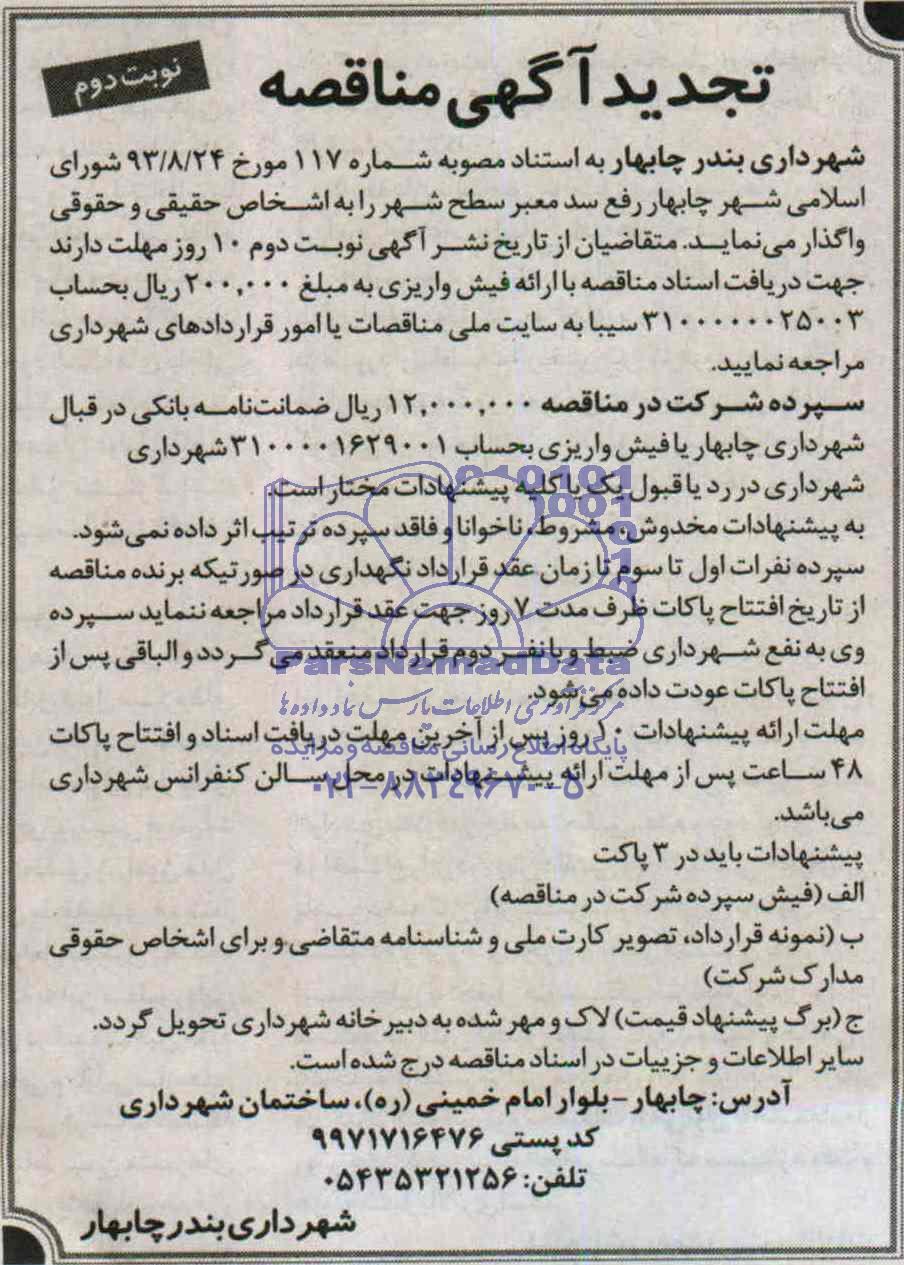 تجدید آگهی مناقصه
نوبت دوم
شهرداری بندر چابهار به استناد مصوبه شماره ۱۱۷ مورخ ۹۳/۸/۲۴ شورای
اسلامی شهر چابهار رفع سد معبر سطح شهر را به اشخاص حقیقی و حقوقی
واگذار می‌نماید. متقاضیان از تاریخ نشر آگهی نوبت دوم ۱۰ روز مهلت دارند
جهت دریافت اسناد مناقصه با ارائه فیش واریزی به مبلغ ۲۰۰,۰۰۰ ریال بحساب
۳۱۰۰۰۰۰۰۲۵۰۰۳ سیبا به سایت ملی مناقصات یا امور قراردادهای شهرداری
مراجعه نمایید.
سپرده شرکت در مناقصه ۱۲,۰۰۰,۰۰۰ ریال ضمانت‌نامه بانکی در قبال
شهرداری چابهار یا فیش واریزی بحساب ۳۱۰۰۰۰۱۶۲۹۰۰۱ شهرداری
شهرداری در رد یا قبول یک یا کلیه پیشنهادات مختار است.
به پیشنهادات مخدوش، مشروط، ناخوانا و فاقد سپرده ترتیب اثر داده نمی‌شود.
سپرده نفرات اول تا سوم تا زمان عقد قرارداد نگهداری در صورتیکه برنده مناقصه
از تاریخ افتتاح پاکات ظرف مدت ۷ روز جهت عقد قرارداد مراجعه ننماید سپرده
وی به نفع شهرداری ضبط و با نفر دوم قرارداد منعقد می‌گردد و الباقی پس از
افتتاح پاکات عودت داده می‌شود.
مهلت ارائه پیشنهادات ۱۰ روز پس از آخرین مهلت دریافت اسناد و افتتاح پاکات
۴۸ ساعت پس از مهلت ارائه پیشنهادات در محل سالن کنفرانس شهرداری
می‌باشد.
پیشنهادات باید در ۳ پاکت
الف (فیش سپرده شرکت در مناقصه)
ب (نمونه قرارداد، تصویر کارت ملی و شناسنامه متقاضی و برای اشخاص حقوقی
مدارک شرکت)
ج (برگ پیشنهاد قیمت) لاک و مهر شده به دبیرخانه شهرداری تحویل گردد.
سایر اطلاعات و جزییات در اسناد مناقصه درج شده است.
آدرس: چابهار - بلوار امام خمینی (ره)، ساختمان شهرداری
کد پستی ۹۹۷۱۷۱۶۴۷۶
تلفن: ۰۵۴۳۵۳۲۱۲۵۶
شهرداری بندر چابهار
ParsNamadData
مرکز فرآوری اطلاعات پارس نماد داده‌ها
پایگاه اطلاع رسانی مناقصه و مزایده
۰۲۱-۸۸۳۴۹۶۷۰-۵